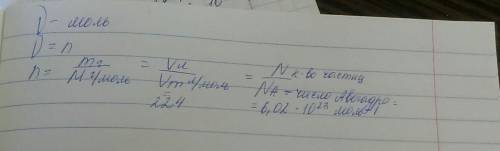 ν - моль
ν = n
n = m г / M г/моль = V л / Vm л/моль = N к-во частиц / NА - число Авогадро =
22,4 = 6,02 · 10²³ моль⁻¹